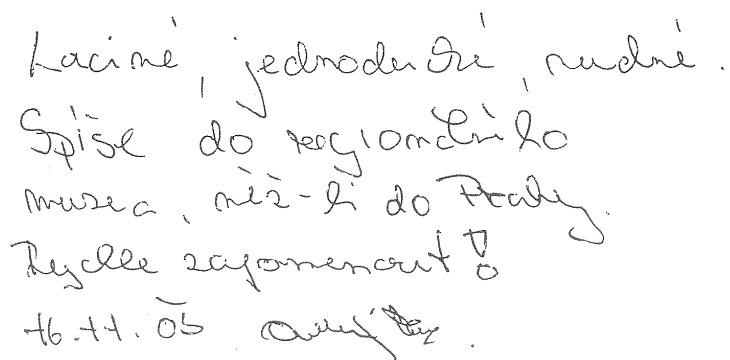 Laciné, jednoduché, nudné.
Spíše do regionálního
muzea, něž-li do Prahy.
Rychle zapomenout!
16.11.05